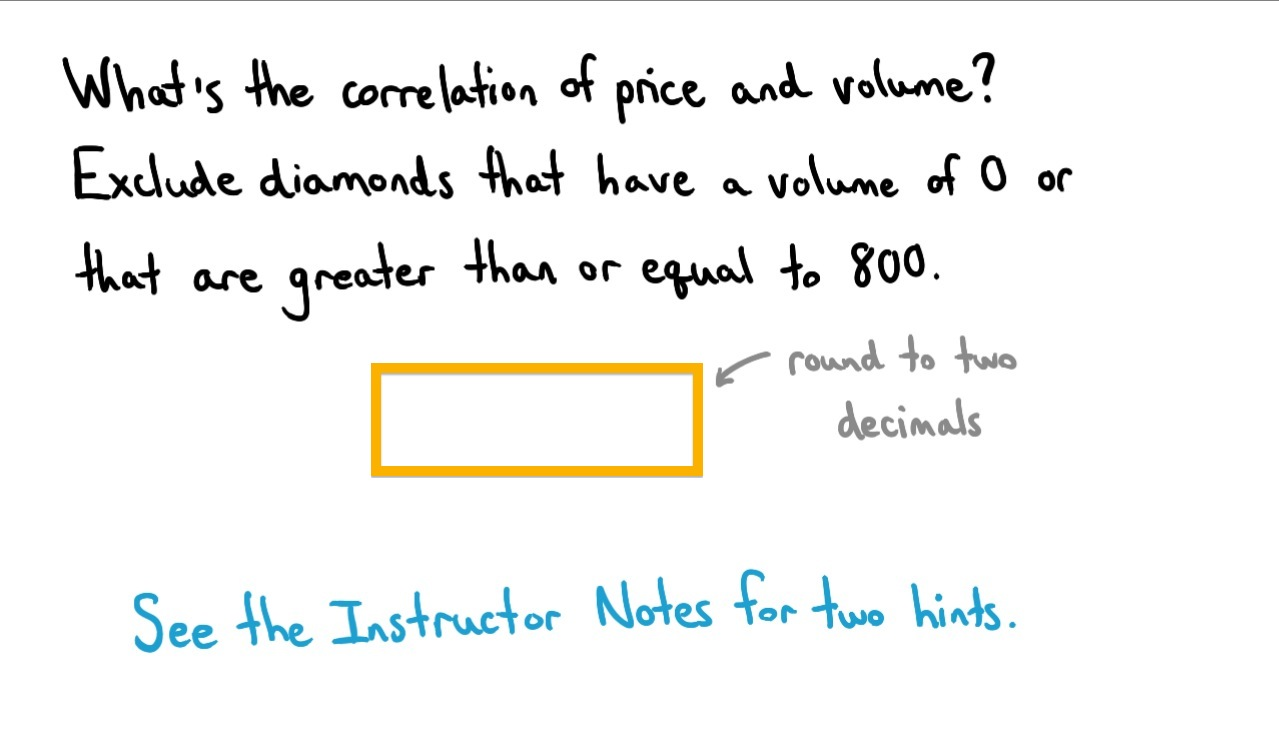 What's the correlation of price and volume?
Exclude diamonds that have a volume of 0 or
that are greater than or equal to 800.
round to two
decimals
See the Instructor Notes for two hints.